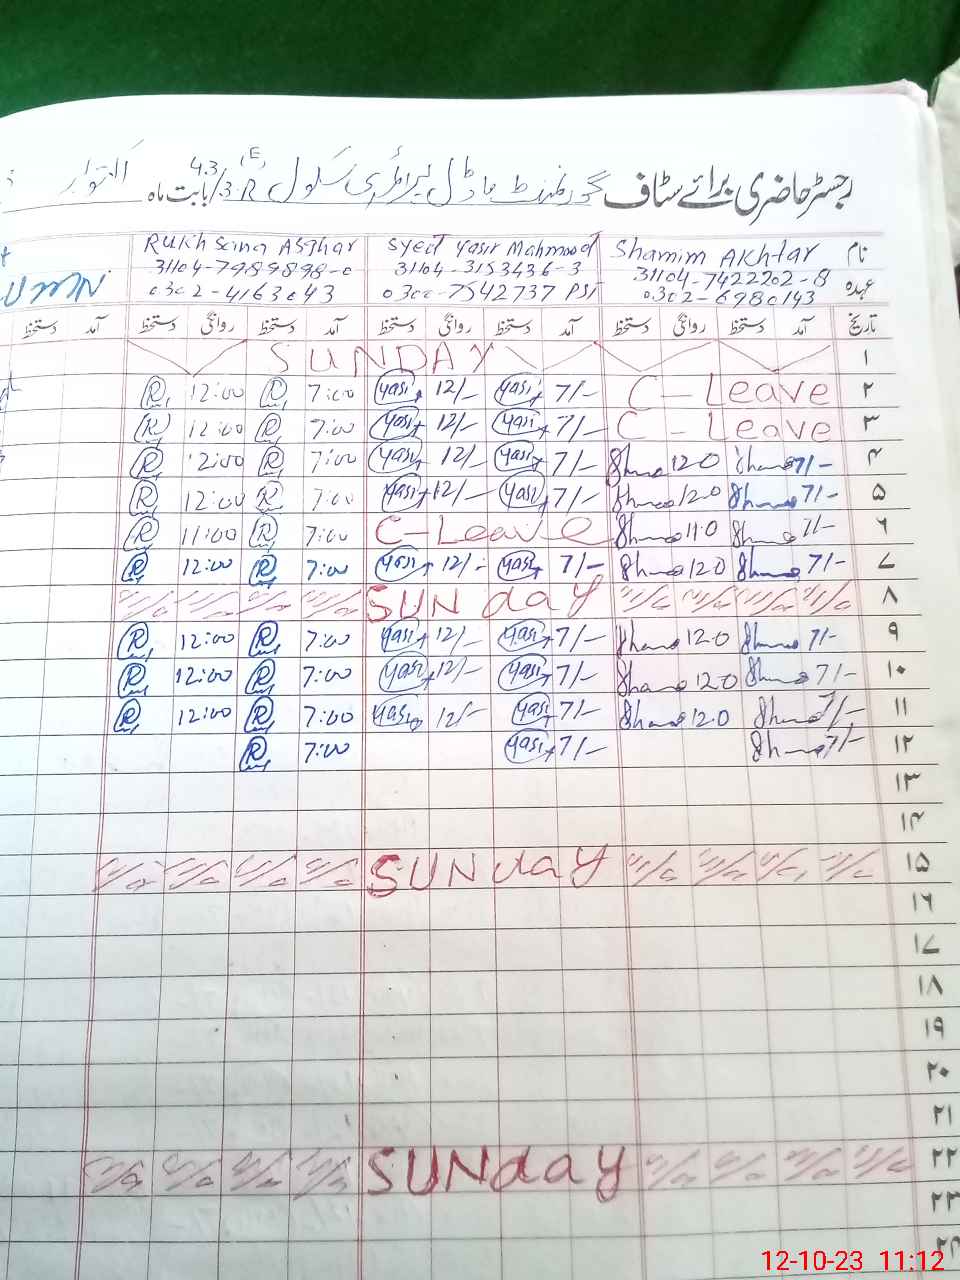 رجسٹر حاضری برائے سٹاف گورنمنٹ ماڈل پرائمری سکول 43/3.R (E) بابت ماہ اکتوبر
نام Shamim Akhtar Syed Yasir Mahmood Rukhsana Asghar
31104-7422202-8 31104-3153436-3 31104-7989898-0
عہدہ 0302-6980143 0300-7542737 PST 0302-4163043
تاریخ آمد دستخط روانگی دستخط آمد دستخط روانگی دستخط آمد دستخط روانگی دستخط آمد دستخط
۱ SUNDAY
۲ C-Leave 7/- Yasir 12/- Yasir 7:00 R 12:00 R
۳ C-Leave 7/- Yasir 12/- Yasir 7:00 R 12:00 R
۴ 7/- Sham 12.0 Sham 7/- Yasir 12/- Yasir 7:00 R 12:00 R
۵ 7/- Sham 12.0 Sham 7/- Yasir 12/- Yasir 7:00 R 12:00 R
۶ 7/- Sham 11.0 Sham C-Leave 7:00 R 11:00 R
۷ 7/- Sham 12.0 Sham 7/- Yasir 12/- Yasir 7:00 R 12:00 R
۸ SUNday
۹ 7/- Sham 12.0 Sham 7/- Yasir 12/- Yasir 7:00 R 12:00 R
۱۰ 7/- Sham 12.0 Sham 7/- Yasir 12/- Yasir 7:00 R 12:00 R
۱۱ 7/- Sham 12.0 Sham 7/- Yasir 12/- Yasir 7:00 R 12:00 R
۱۲ 7/- Sham 7/- Yasir 7:00 R
۱۳
۱۴
۱۵ SUNday
۱۶
۱۷
۱۸
۱۹
۲۰
۲۱
۲۲ SUNday
۲۳
12-10-23 11:12